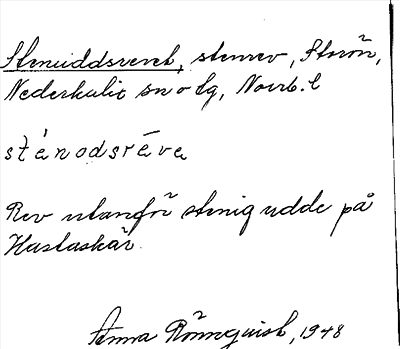 Stenuddsrevet, stenrev, Storön,
Nederkalix sn o lg, Norrb. l
stenodsreva
Rev utanför stenig udde på
Hastaskär.
Anna Rönnquist, 1948